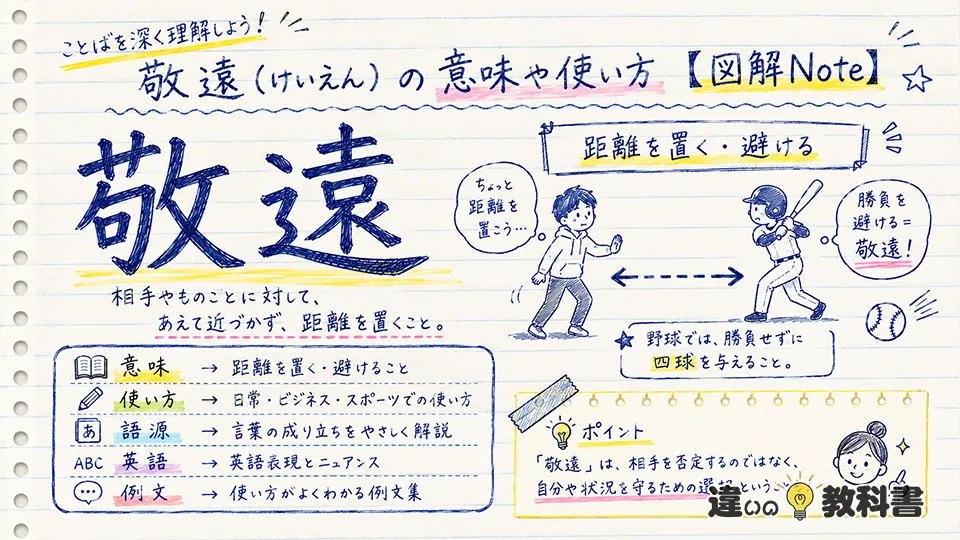 ことばを深く理解しよう!
敬遠(けいえん)の意味や使い方【図解Note】
敬遠
相手やものごとに対して、
あえて近づかず、距離を置くこと。
意味 → 距離を置く・避けること
使い方 → 日常・ビジネス・スポーツでの使い方
あ 語源 → 言葉の成り立ちをやさしく解説
ABC 英語 → 英語表現とニュアンス
例文 → 使い方がよくわかる例文集
距離を置く・避ける
ちょっと
距離を
置こう…
勝負を
避ける=
敬遠!
野球では、勝負せずに
四球を与えること。
ポイント
「敬遠」は、相手を否定するのではなく、
自分や状況を守るための選択ということ
違いの教科書